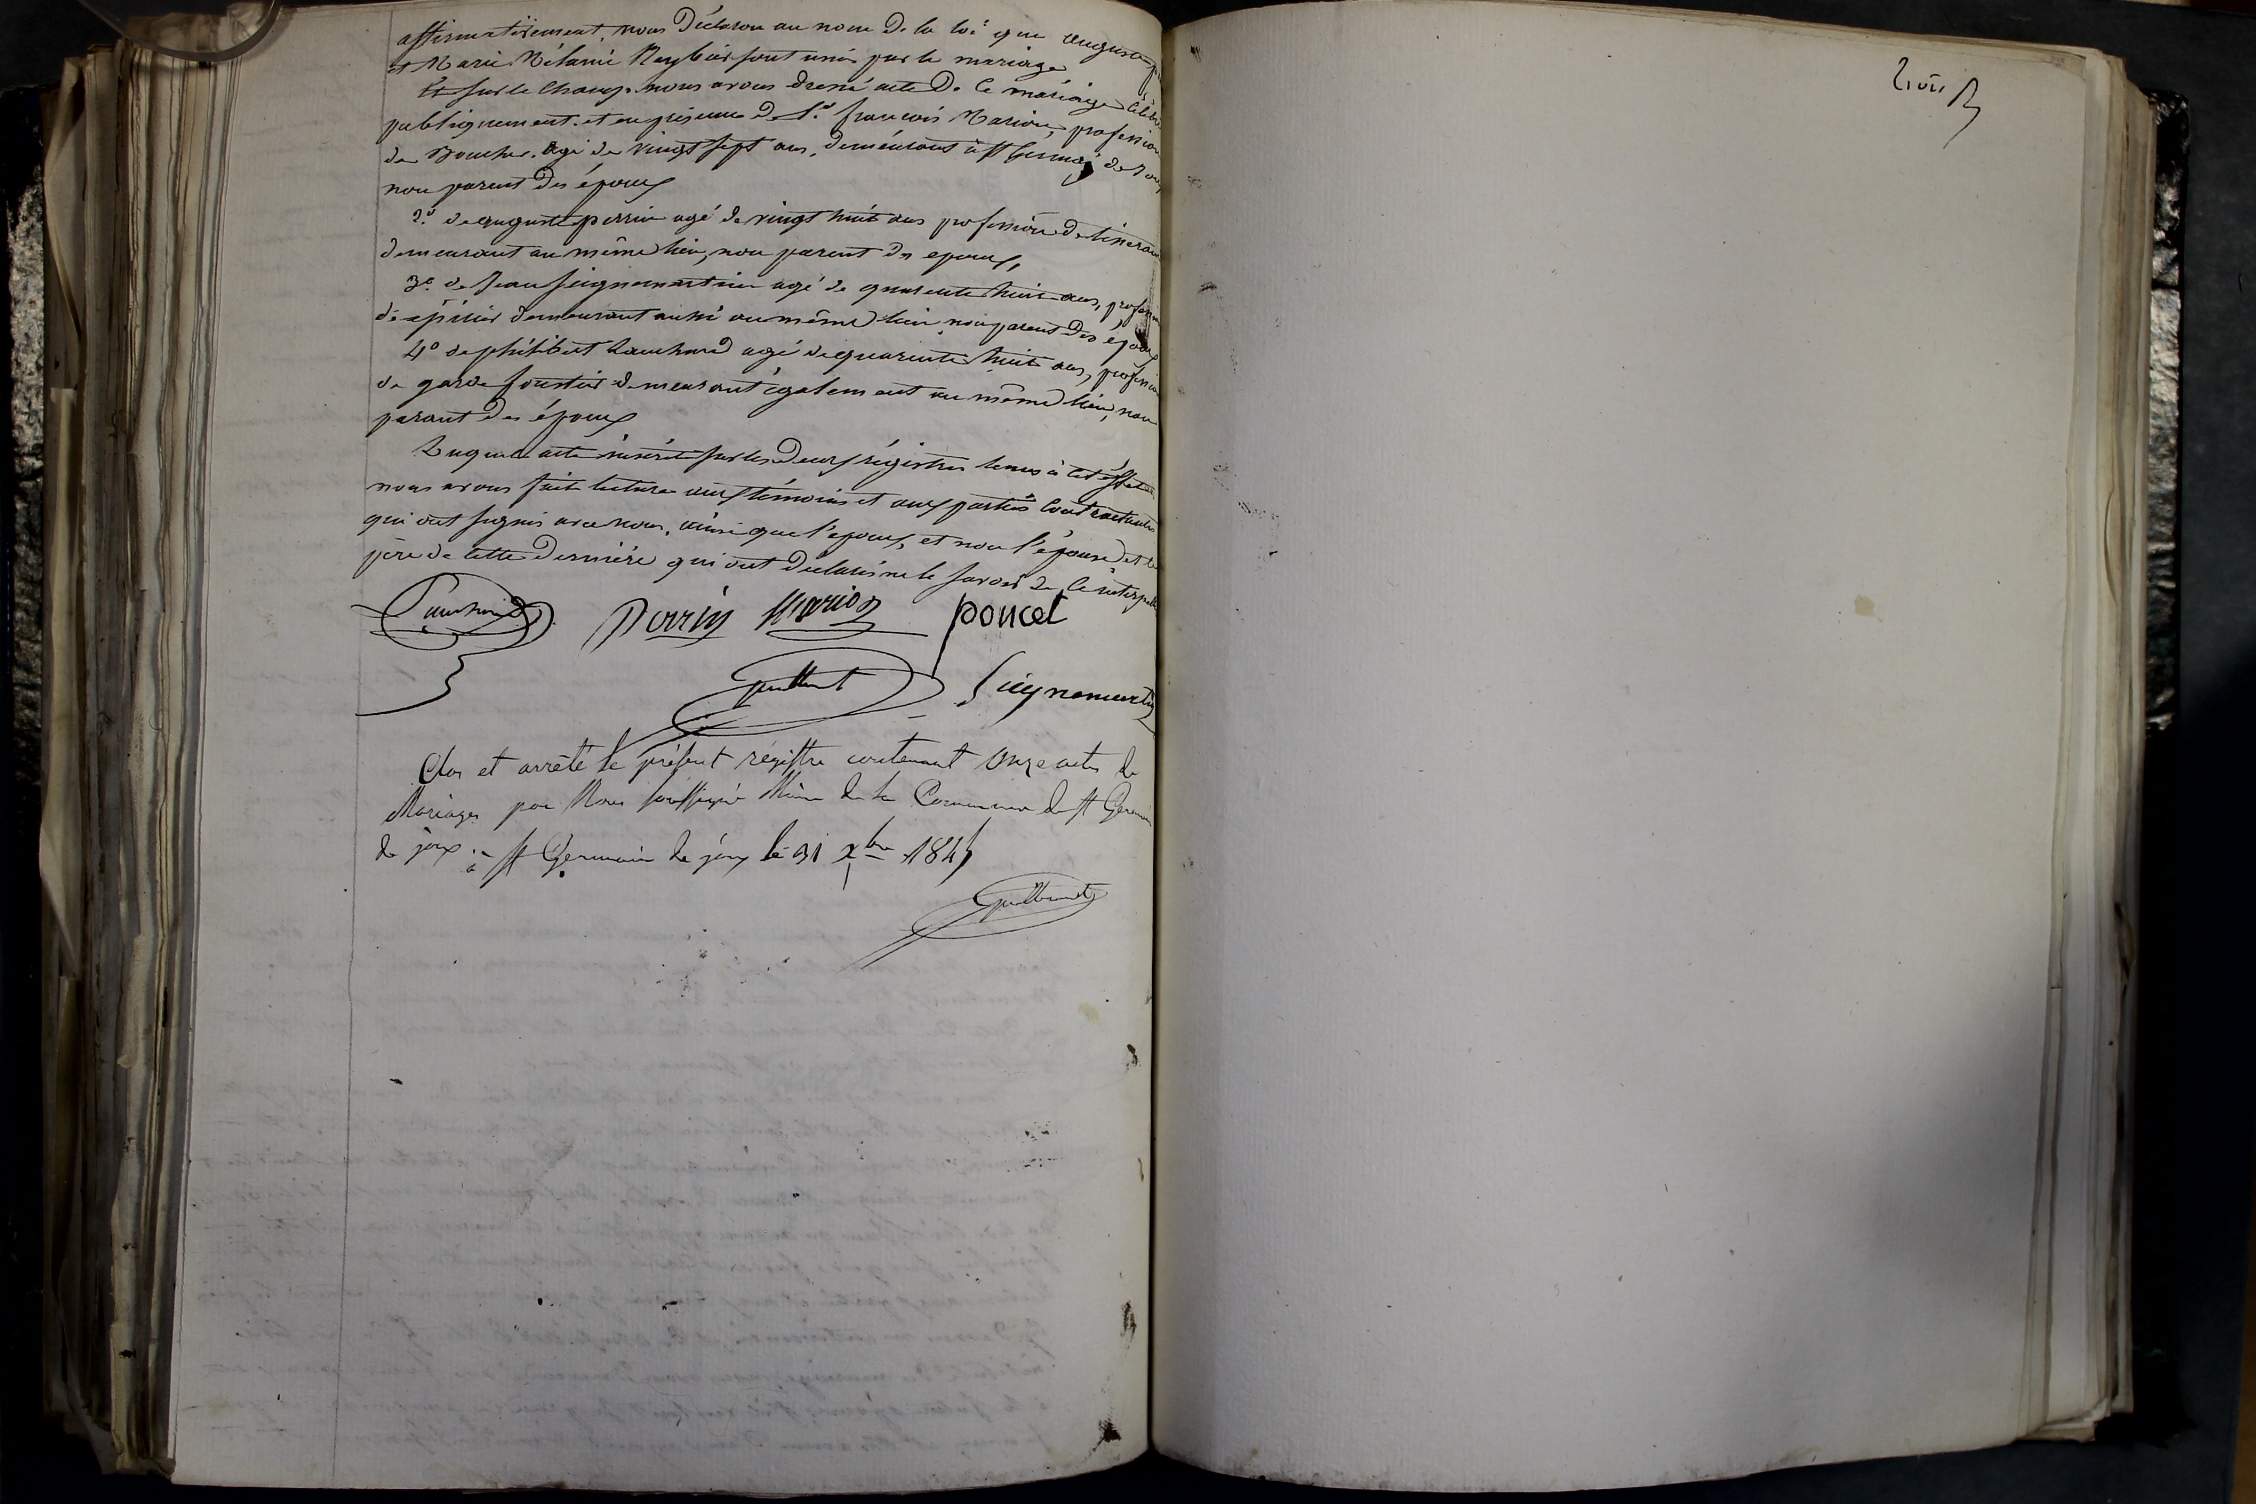 affirmativement, nous Déclarons au nom De la loi que auguste
et Marie Mélanie Reybier sont unis par le mariage
Et sur le Champ nous avons dressé acte De Ce mariage Célébré
publiquement et en présence De 1.º francois Marion, profession
de Boucher, agé de vingt sept ans, demeurant à St Germain de Joux
non parent des époux
2.º de auguste perrin agé de vingt huit ans profession De tisserand
demeurant au même lieu, non parent des epoux,
3º de Jean Seignemartin agé de quarente huit ans, profession
d'épicier demeurant aussi au même lieu non parent Des époux
4º de philibert agé de quarente huit ans, profession
de garde forestier demeurant également au même lieu, non
parant des époux
Duquel acte inscrit sur les Deux régistres tenus à cet effet
nous avons fait lecture aux témoins et aux parties Contractantes
qui ont signés avec nous, ainsi que l'epoux, et non l'épouse et le
père de cette Dernière qui ont Déclarés ne le savoir de Ce
Perrin Marion poncet
Seignemartin
Clos et arrêté le présent régistre contenant Onze actes de
Mariages par Nous soussigné Maire de la Commune de St Germain
de joux. à St Germain de joux le 31 Xbre 184
trois